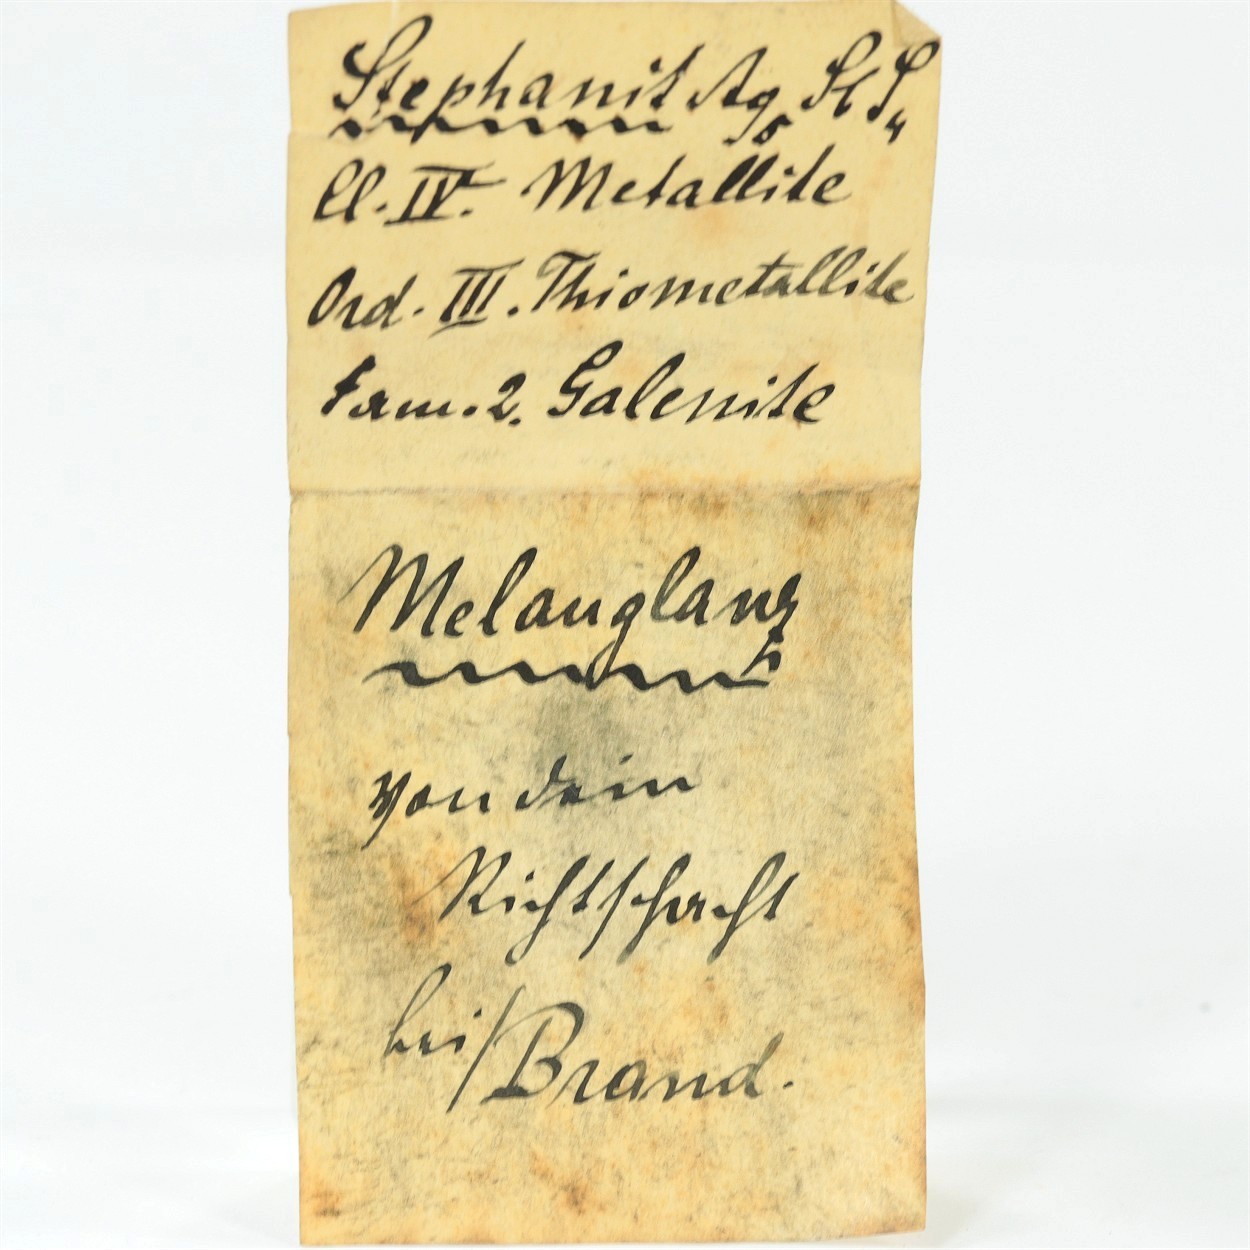 Stephanit Ag5 St S4
Cl. IV. Metallite
Ord. III. Thiometallite
Fam. 2. Galenite
Melanglanz
von dem
Richtschacht
bei/Brand.